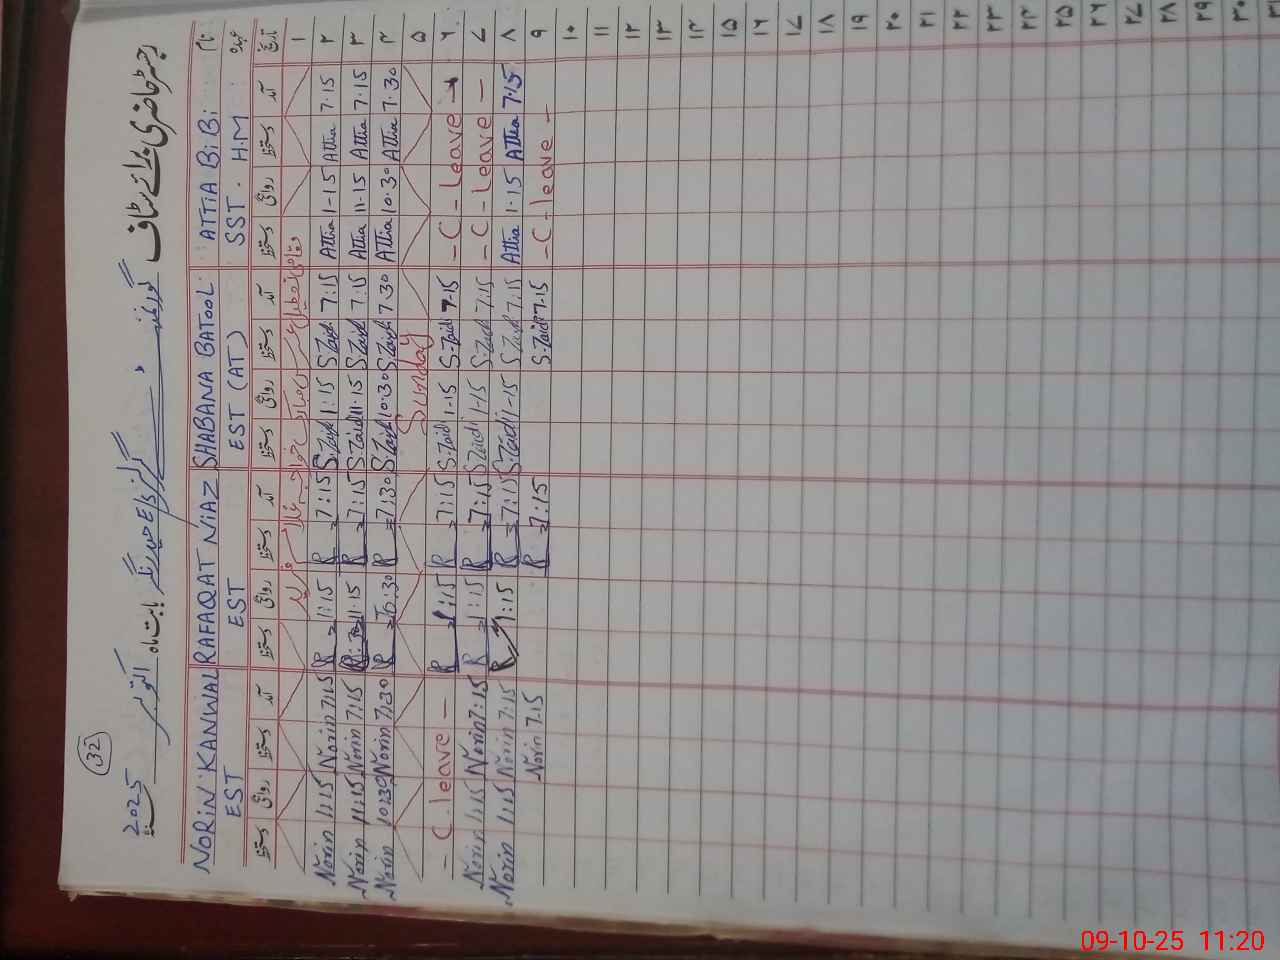 32
رجسٹر حاضری برائے سٹاف گورنمنٹ گرلز ہائی حیدر نگر بابت ماہ اکتوبر 2025
نام ATTIA BiBi SHABANA BATOOL RAFAQAT NIAZ NORiN KANWAL
عہدہ SST. H.M EST (AT) EST EST
تاریخ آمد دستخط روانگی دستخط آمد دستخط روانگی دستخط آمد دستخط روانگی دستخط آمد دستخط روانگی دستخط
۱ مقامی تعطیل عرس
۲ 7.15 Attia 1-15 Attia 7:15 S.Zaidi 1:15 S.Zaidi 7:15 R 1:15 R 7:15 Norin 1:15 Norin
۳ 7.15 Attia 11.15 Attia 7:15 S.Zaidi 11.15 S.Zaidi 7:15 R 11.15 R 7:15 Norin 11:15 Norin
۴ 7.30 Attia 10.30 Attia 7.30 S.Zaidi 10.30 S.Zaidi 7:30 R 10:30 R 7:30 Norin 10:30 Norin
۵ Sunday
۶ - C - Leave - 7-15 S.Zaidi 1-15 S.Zaidi 7:15 R 1:15 R - C. leave -
۷ - C - Leave - 7:15 S.Zaidi 1-15 S.Zaidi 7:15 R 1:15 R 7:15 Norin 1:15 Norin
۸ 7.15 Attia 1.15 Attia 7.15 S.Zaidi 1-15 S.Zaidi 7:15 R 1:15 R 7:15 Norin 1:15 Norin
۹ - C - leave - 7-15 S.Zaidi 7:15 R 7.15 Norin
۱۰
۱۱
۱۲
۱۳
۱۴
۱۵
۱۶
۱۷
۱۸
۱۹
۲۰
۲۱
۲۲
۲۳
۲۴
۲۵
۲۶
۲۷
۲۸
۲۹
۳۰
۳۱
09-10-25 11:20